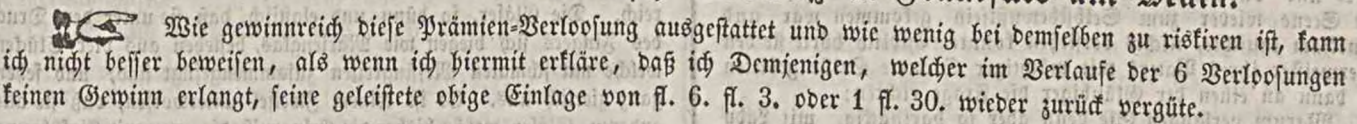 Wie gewinnreich diese Prämien-Verloosung ausgestattet und wie wenig bei demselben zu riskiren ist, kann
ich nicht besser beweisen, als wenn ich hiermit erkläre, daß ich Demjenigen, welcher im Verlaufe der 6 Verloosungen
keinen Gewinn erlangt, seine geleistete obige Einlage von fl. 6. fl. 3. oder 1 fl. 30. wieder zurück vergüte.